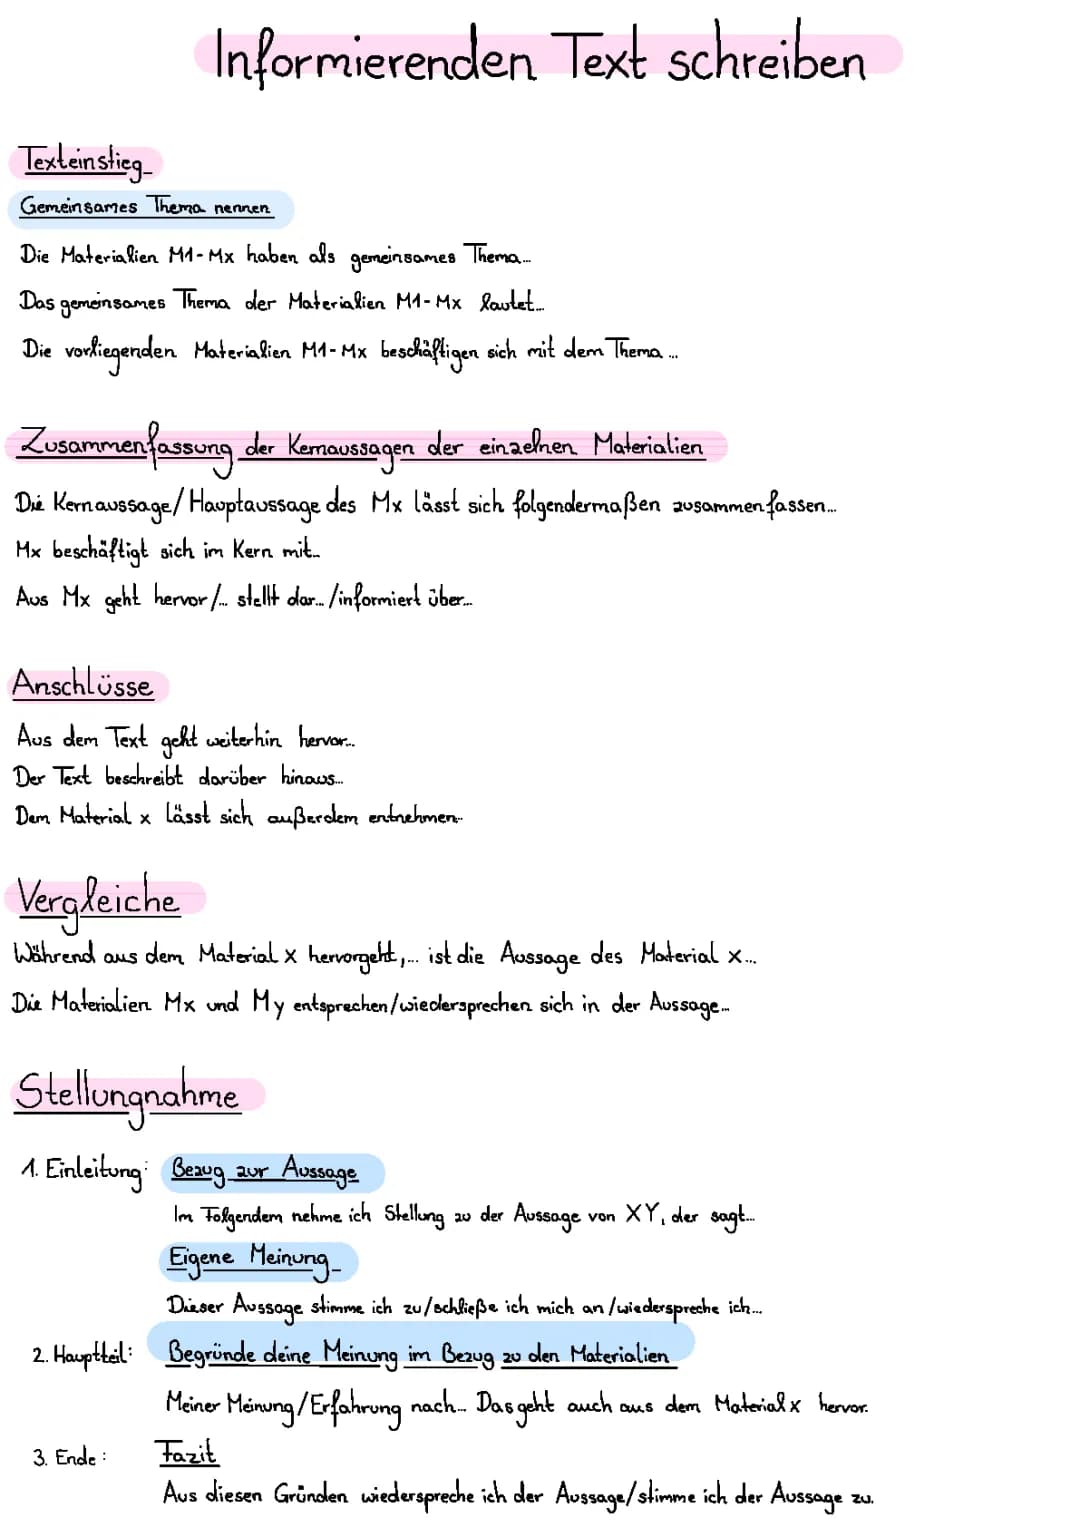 Informierenden Text schreiben
Texteinstieg
Gemeinsames Thema nennen
Die Materialien M1-Mx haben als gemeinsames Thema...
Das gemeinsames Thema der Materialien M1-Mx lautet...
Die vorliegenden Materialien M1-Mx beschäftigen sich mit dem Thema...
Zusammenfassung der Kernaussagen der einzelnen Materialien
Die Kernaussage/Hauptaussage des Mx lässt sich folgendermaßen zusammenfassen...
Mx beschäftigt sich im Kern mit...
Aus Mx geht hervor/... stellt dar.../informiert über...
Anschlüsse
Aus dem Text geht weiterhin hervor...
Der Text beschreibt darüber hinaus...
Dem Material x lässt sich außerdem entnehmen...
Vergleiche
Während aus dem Material x hervorgeht,... ist die Aussage des Material x...
Die Materialien Mx und My entsprechen/wiedersprechen sich in der Aussage...
Stellungnahme
1. Einleitung: Bezug zur Aussage
Im Folgendem nehme ich Stellung zu der Aussage von XY, der sagt...
Eigene Meinung
Dieser Aussage stimme ich zu/schließe ich mich an/wiederspreche ich...
2. Hauptteil: Begründe deine Meinung im Bezug zu den Materialien
Meiner Meinung/Erfahrung nach... Das geht auch aus dem Material x hervor.
3. Ende: Fazit
Aus diesen Gründen wiederspreche ich der Aussage/stimme ich der Aussage zu.